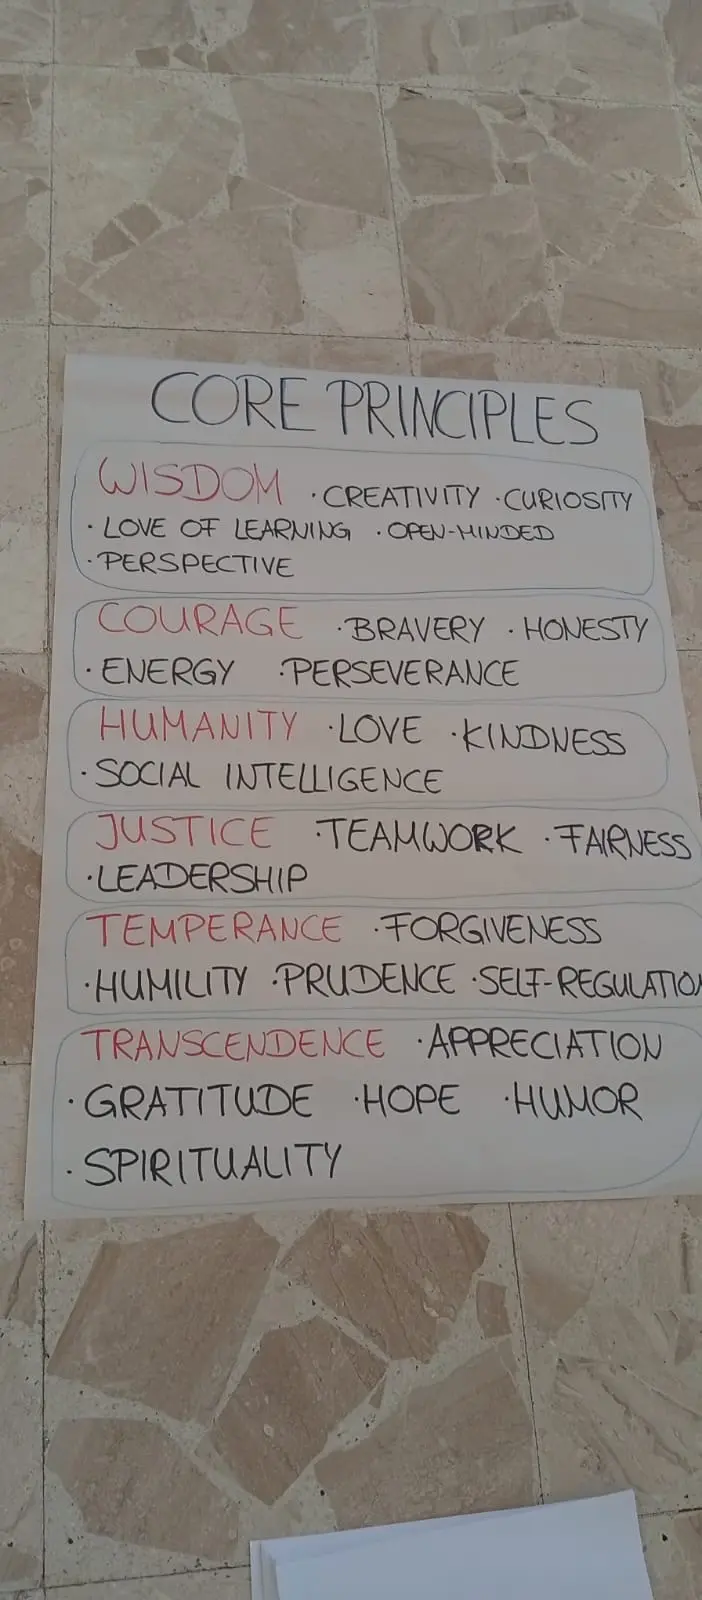 CORE PRINCIPLES
WISDOM · CREATIVITY · CURIOSITY
· LOVE OF LEARNING · OPEN-MINDED
· PERSPECTIVE
COURAGE · BRAVERY · HONESTY
· ENERGY · PERSEVERANCE
HUMANITY · LOVE · KINDNESS
· SOCIAL INTELLIGENCE
JUSTICE · TEAMWORK · FAIRNESS
· LEADERSHIP
TEMPERANCE · FORGIVENESS
· HUMILITY · PRUDENCE · SELF-REGULATION
TRANSCENDENCE · APPRECIATION
· GRATITUDE · HOPE · HUMOR
· SPIRITUALITY